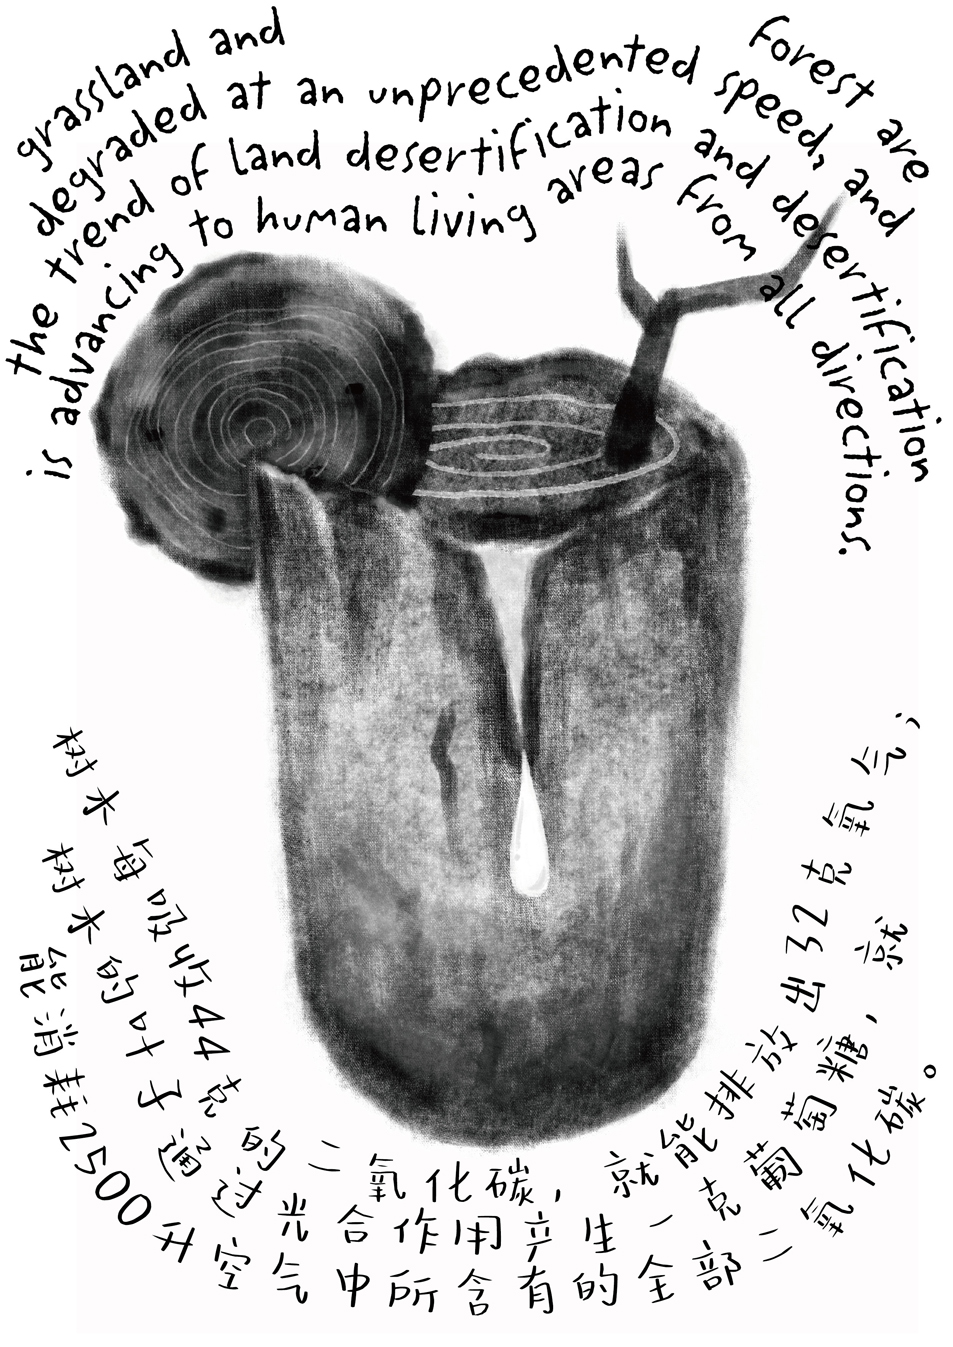 grassland and forest are
degraded at an unprecedented speed, and
the trend of land desertification and desertification
is advancing to human living areas from all directions.
树木每吸收44克的二氧化碳，就能排放出32克氧气；
树木的叶子通过光合作用产生一克葡萄糖，就
能消耗2500升空气中所含有的全部二氧化碳。